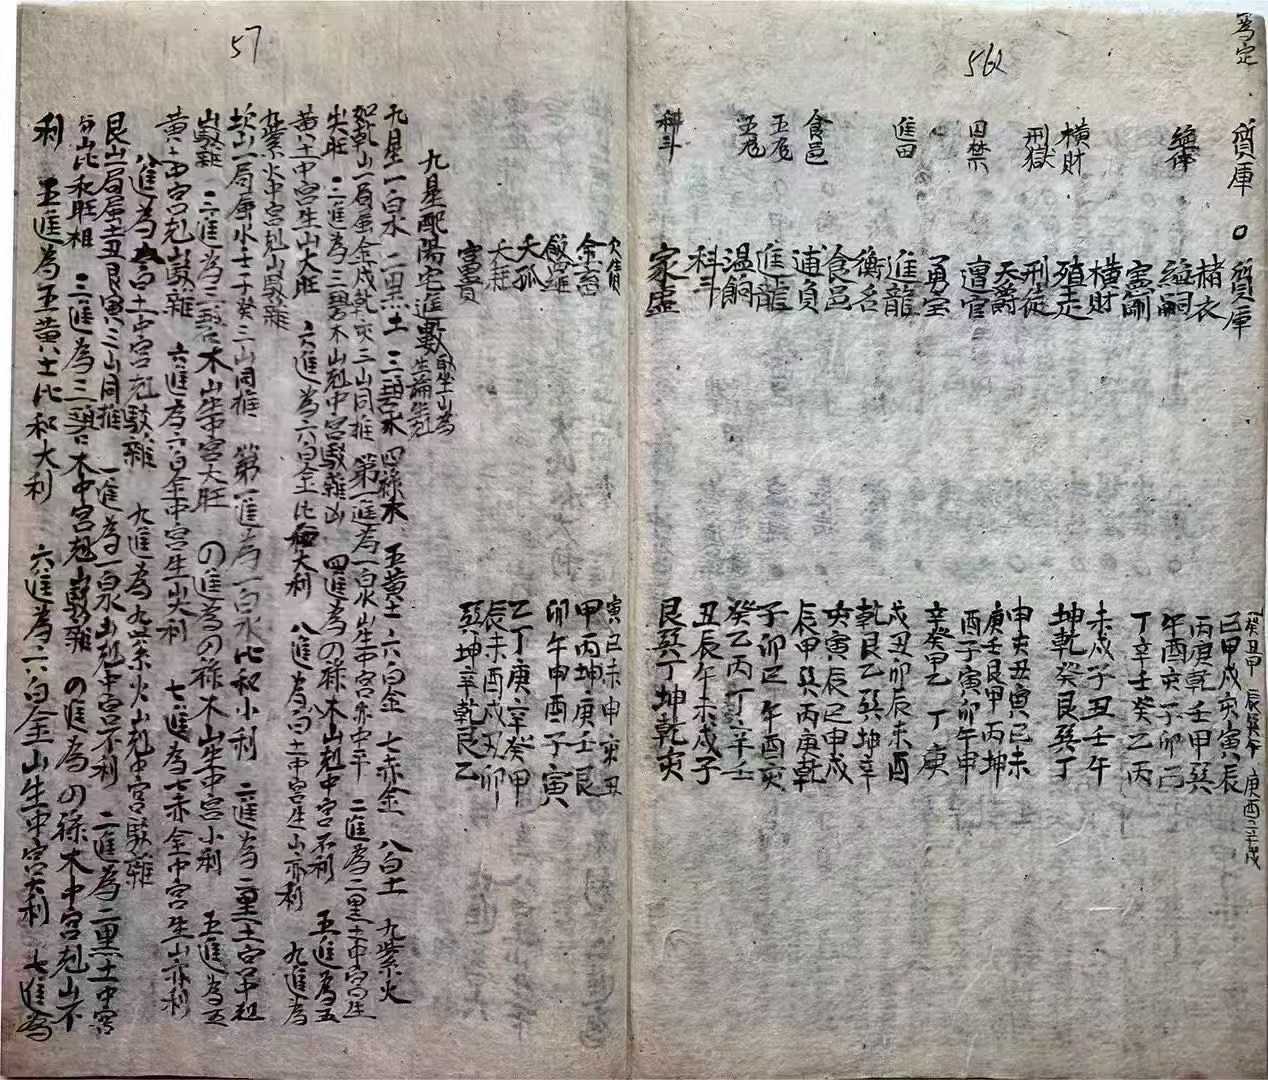 56
為定
質庫
質庫
緒衣
絕嗣
橫財
橫財
殖走
刑獄
刑徒
天爵
囚禁
遭官
勇宝
進田
進龍
食邑
食邑
衡石
逋負
進龍
溫飽
科斗
科斗
家虛
癸丑甲 辰巽午 庚酉辛戌
巳甲戌亥寅辰
丙庚乾壬甲巽
午酉亥子卯巳
丁辛壬癸乙丙
未戌子丑壬午
坤乾癸艮巽丁
申亥丑寅巳未
庚壬艮甲丙坤
酉子寅卯午申
辛癸甲乙丁庚
戌丑卯辰未酉
乾艮乙巽坤辛
亥寅辰巳申戌
辰甲巽丙庚乾
子卯巳午酉亥
癸乙丙丁辛壬
丑辰午未戌子
艮巽丁坤乾亥
57
欠債
天孤
天耗
富貴
寅巳未申亥丑
甲丙坤庚壬艮
卯午申酉子寅
乙丁庚辛癸甲
辰未酉戌丑卯
巽坤辛乾艮乙
九星配陽宅進數
九星一白水 二黑土 三碧木 四祿木 五黃土 六白金 七赤金 八白土 九紫火
如乾山一局屬金戌乾亥三山同推 第一進為一白水山生中宮亦中平 二進為二黑土中宮生
尖旺 三進為三碧木山剋中宮駁雜凶 四進為の祿木山剋中宮不利 五進為五
黃土中宮生山大旺 六進為六白金比和大利 八進為八白土中宮生山亦利 九進為
九紫火中宮剋山駁雜
坎山一局屬水壬子癸三山同推 第一進為一白水比和小利 二進為二黑土中宮剋
山駁雜 三進為三碧木山生中宮大旺 の進為の祿木山生中宮小利 五進為五
黃土中宮剋山駁雜 六進為六白金中宮生山大利 七進為七赤金中宮生山亦利
八進為八白土中宮剋駁雜 九進為九紫火山剋中宮駁雜
艮山一局屬土丑艮寅三山同推 一進為一白水山剋中宮不利 二進為二黑土中宮
與山比和旺相 三進為三碧木中宮剋山駁雜 の進為の祿木中宮剋山不
利 五進為五黃土比和大利 六進為六白金山生中宮大利 七進為